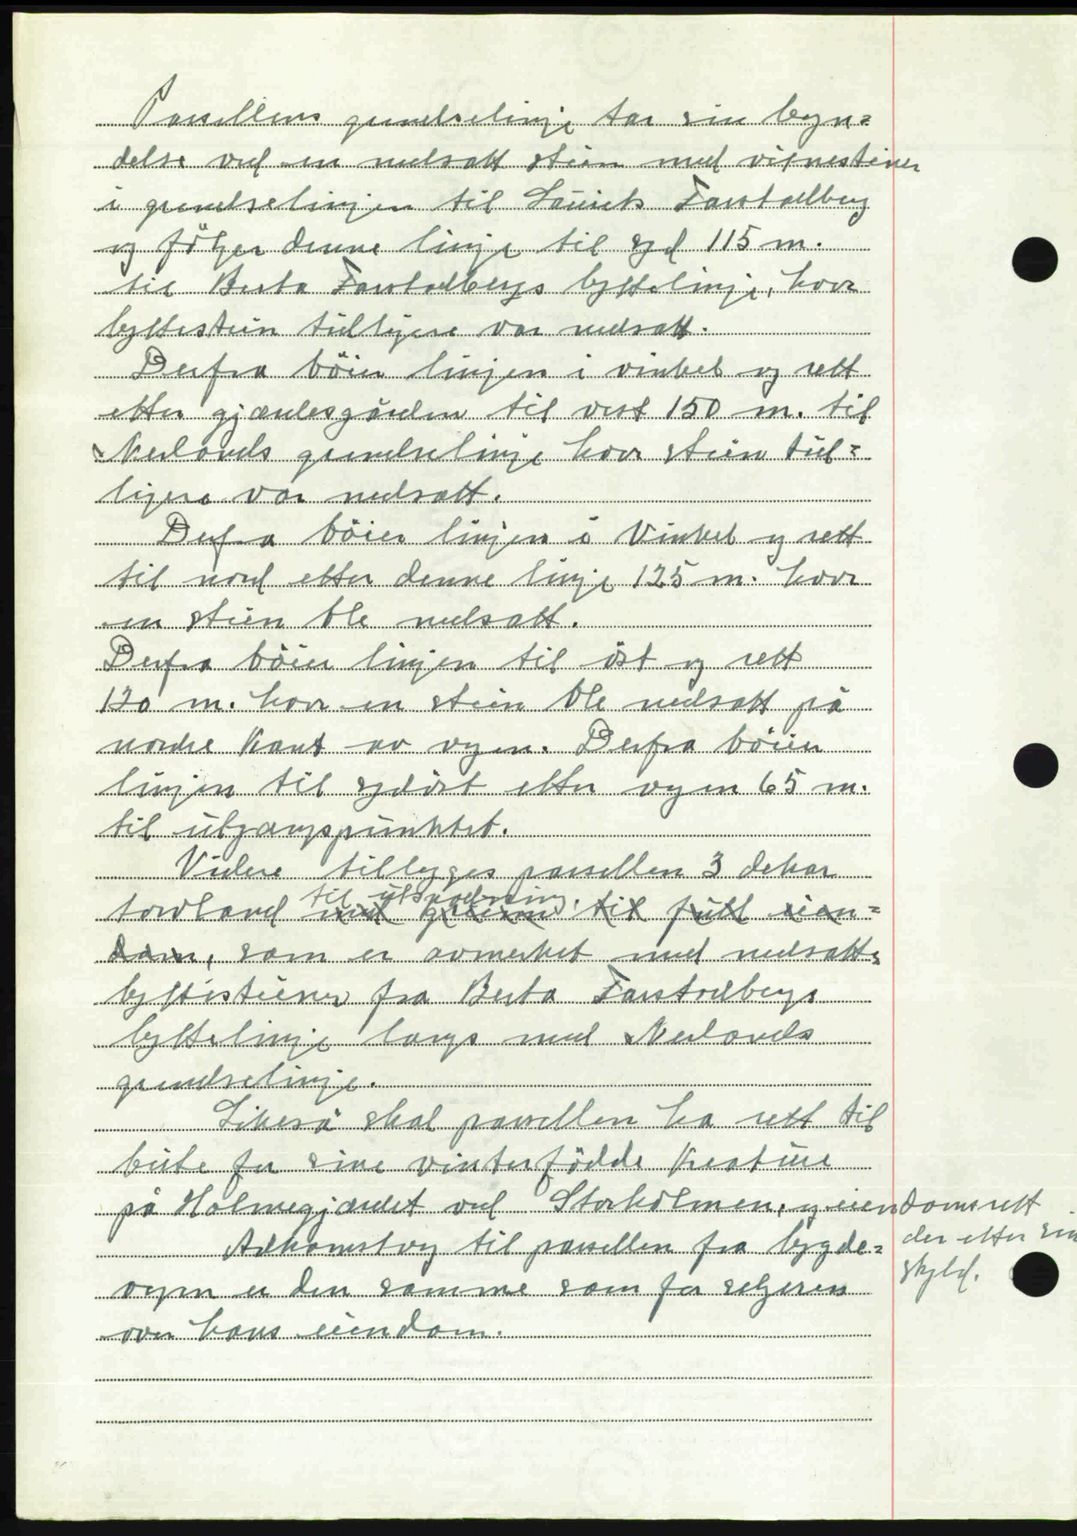 Parsellens grendselinje tar sin byn=
delse ved en nedsatt stein med vitnesteiner
i grendselinjen til Lauits Farstadberg
og følger denne linje til syd 115 m.
til Berta Farstadbergs byttelinje, hvor
byttestein tidligere var nedsatt.
Derfra böier linjen i vinkel og rett
etter gjærdesgården til vest 150 m. til
Nerlands grendselinje hvor stein tid=
ligere var nedsatt.
Derfra böier linjen i Vinkel og rett
til nord etter denne linje 125 m. hvor
en stein ble nedsatt.
Derfra böier linjen til öst og rett
120 m. hvor en stein ble nedsatt på
nordre kant av vegen. Derfra böier
linjen til sydöst etter vegen 65 m.
til utgangspunktet.
Videre tillegges parsellen 3 dekar
til utspadning.
torvland med grunn til full eien=
dom, som er avmerket med nedsatte
byttesteiner fra Berta Farstadbergs
byttelinje langs med Nerlands
grendselinje.
Likeså skal parsellen ha rett til
beite for sine vinterfödde kreature
på Holmegjærdet ved Storholmen, og eiendomsrett
der etter sin
skyld.
Adkomstveg til parsellen fra bygde=
vegen er den samme som for selgeren
over hans eiendom.